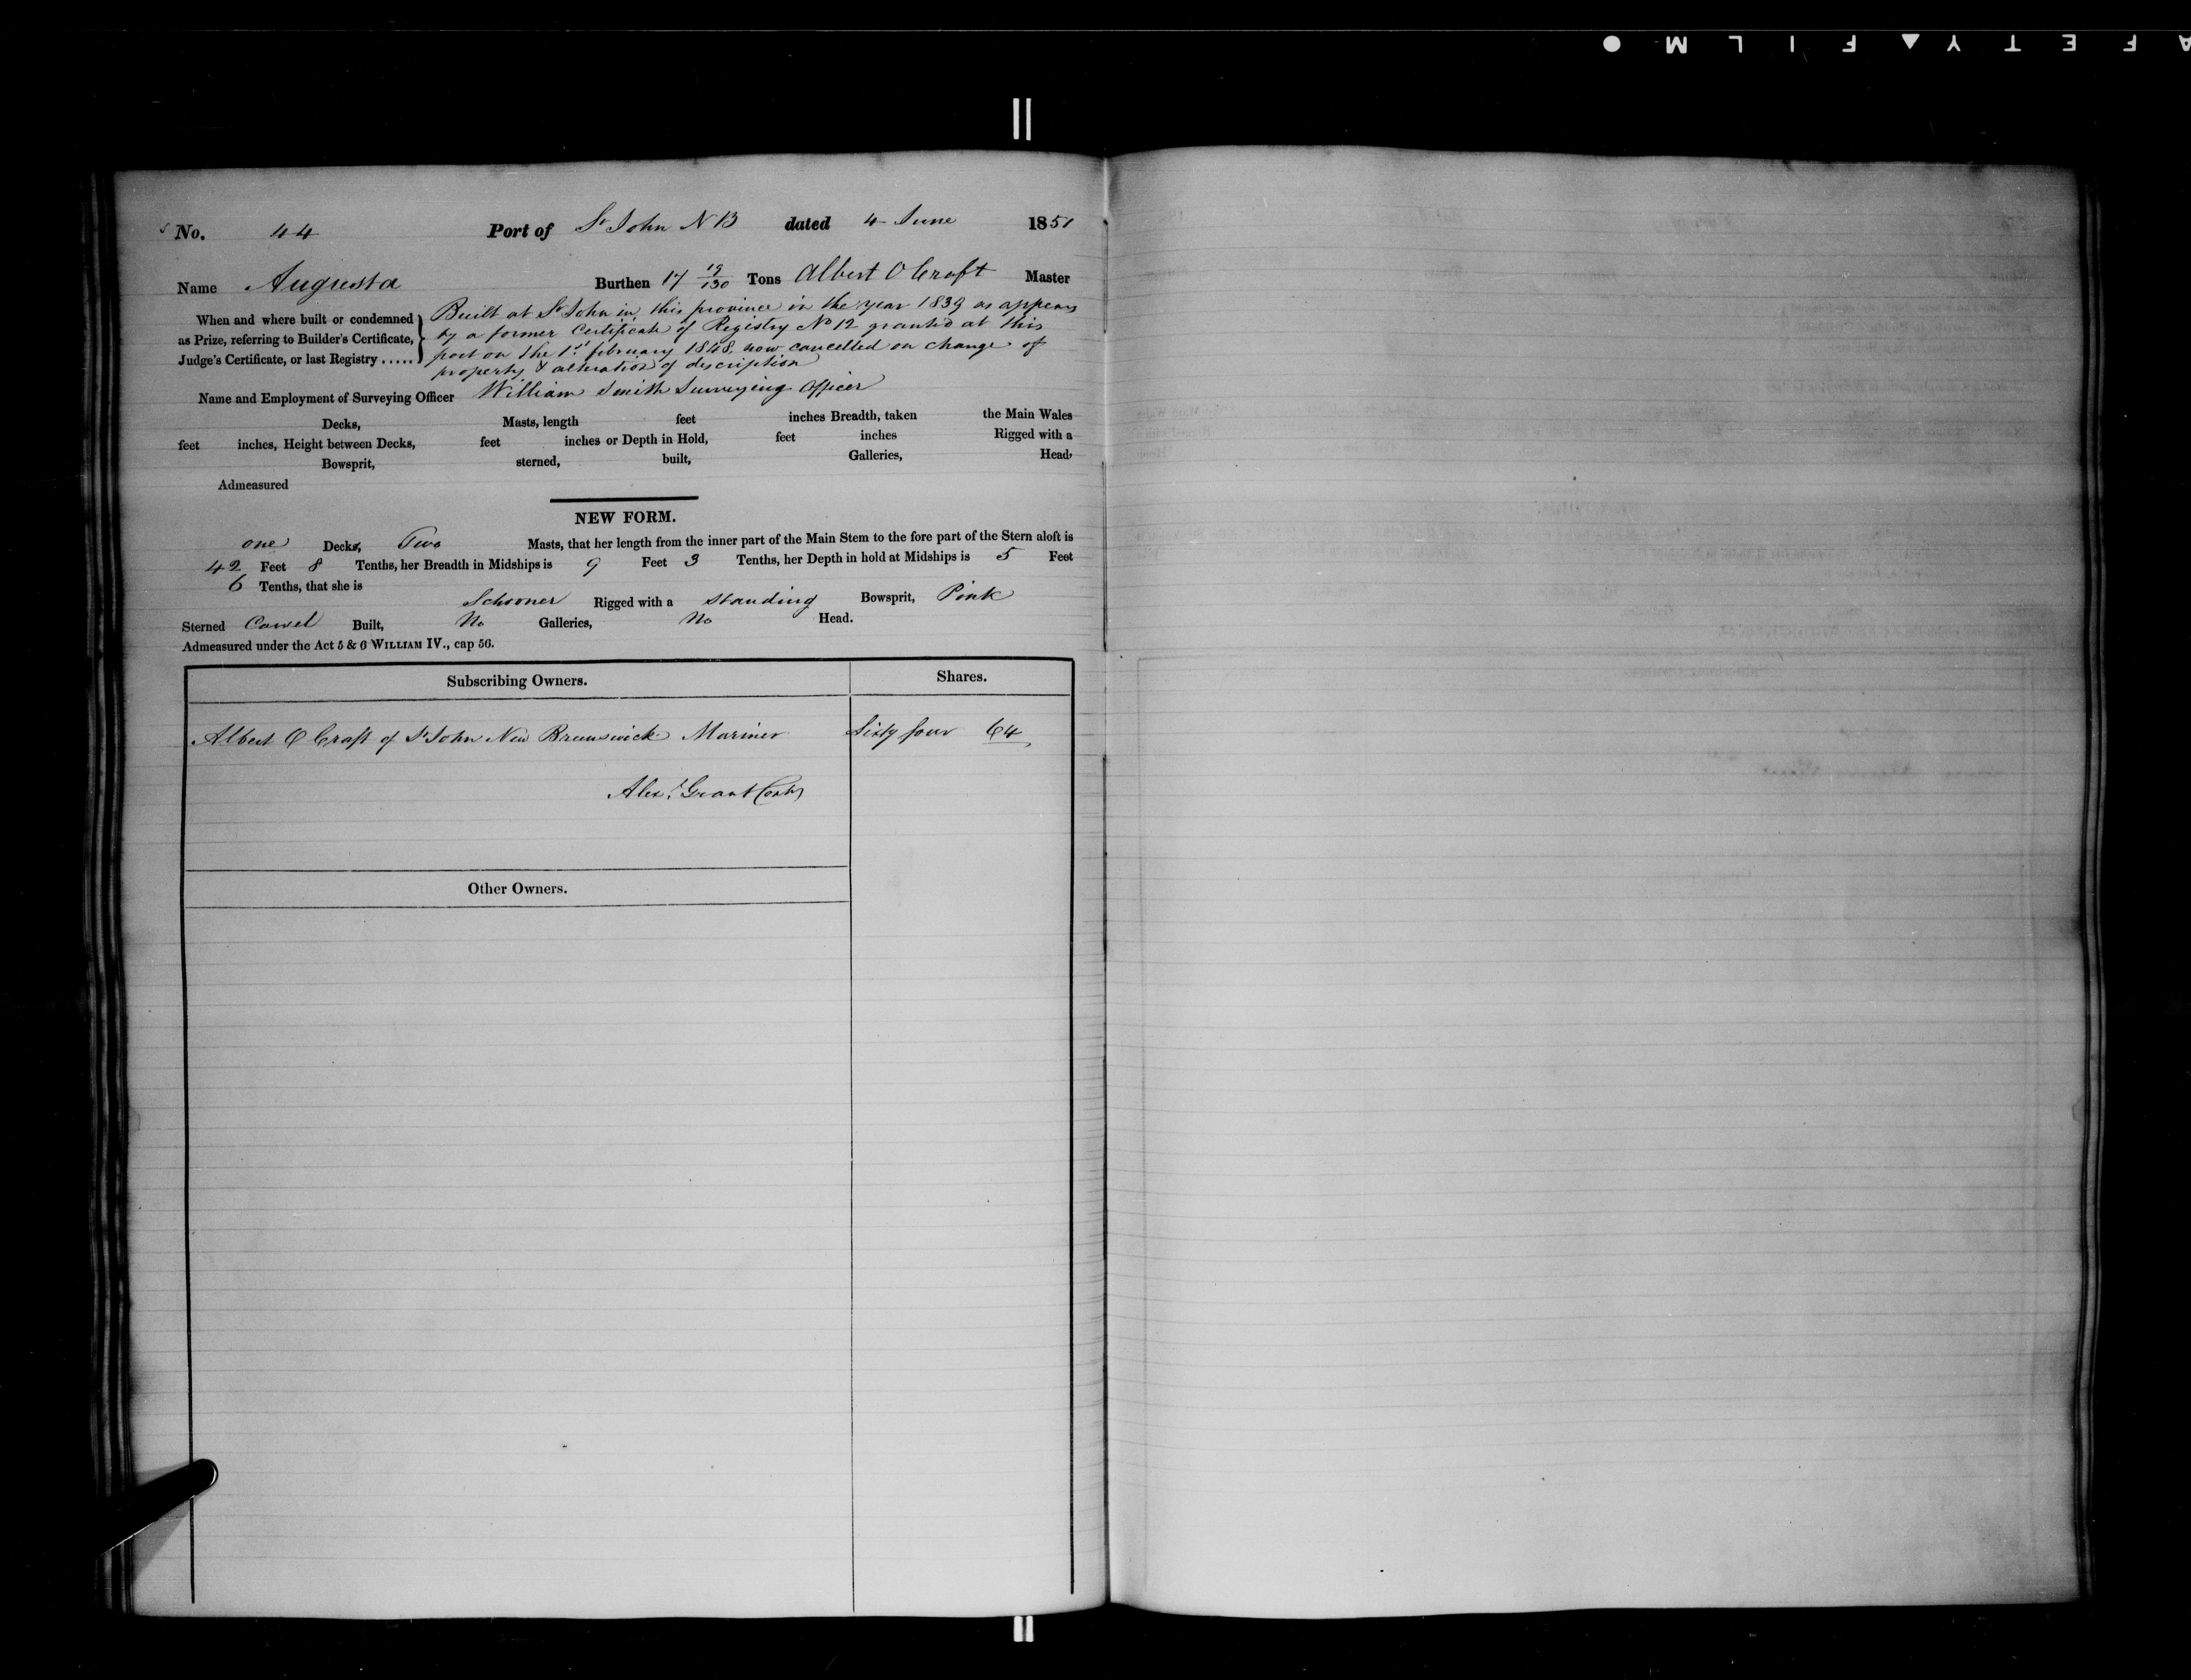 A F E T Y ▲ F I L M ●
No. 44 Port of St John N B dated 4 June 1851
Name Augusta Burthen 17 19/130 Tons Albert O Craft Master
When and where built or condemned as Prize, referring to Builder's Certificate, Judge's Certificate, or last Registry ..... } Built at St John in this province in the year 1839 as appears
by a former Certificate of Registry No 12 granted at this
port on the 1st february 1848, now cancelled on change of
property & alteration of description
Name and Employment of Surveying Officer William Smith Surveying Officer
Decks, Masts, length feet inches Breadth, taken the Main Wales
feet inches, Height between Decks, feet inches or Depth in Hold, feet inches Rigged with a
Bowsprit, sterned, built, Galleries, Head,
Admeasured
NEW FORM.
one Decks, Two Masts, that her length from the inner part of the Main Stem to the fore part of the Stern aloft is
42 Feet 8 Tenths, her Breadth in Midships is 9 Feet 3 Tenths, her Depth in hold at Midships is 5 Feet
6 Tenths, that she is
Schooner Rigged with a standing Bowsprit, Pink
Sterned Carvel Built, No Galleries, No Head.
Admeasured under the Act 5 & 6 WILLIAM IV., cap 56.
Subscribing Owners. Shares.
Albert O Craft of St John New Brunswick Mariner Sixty four 64
Alexr Grant
Other Owners.